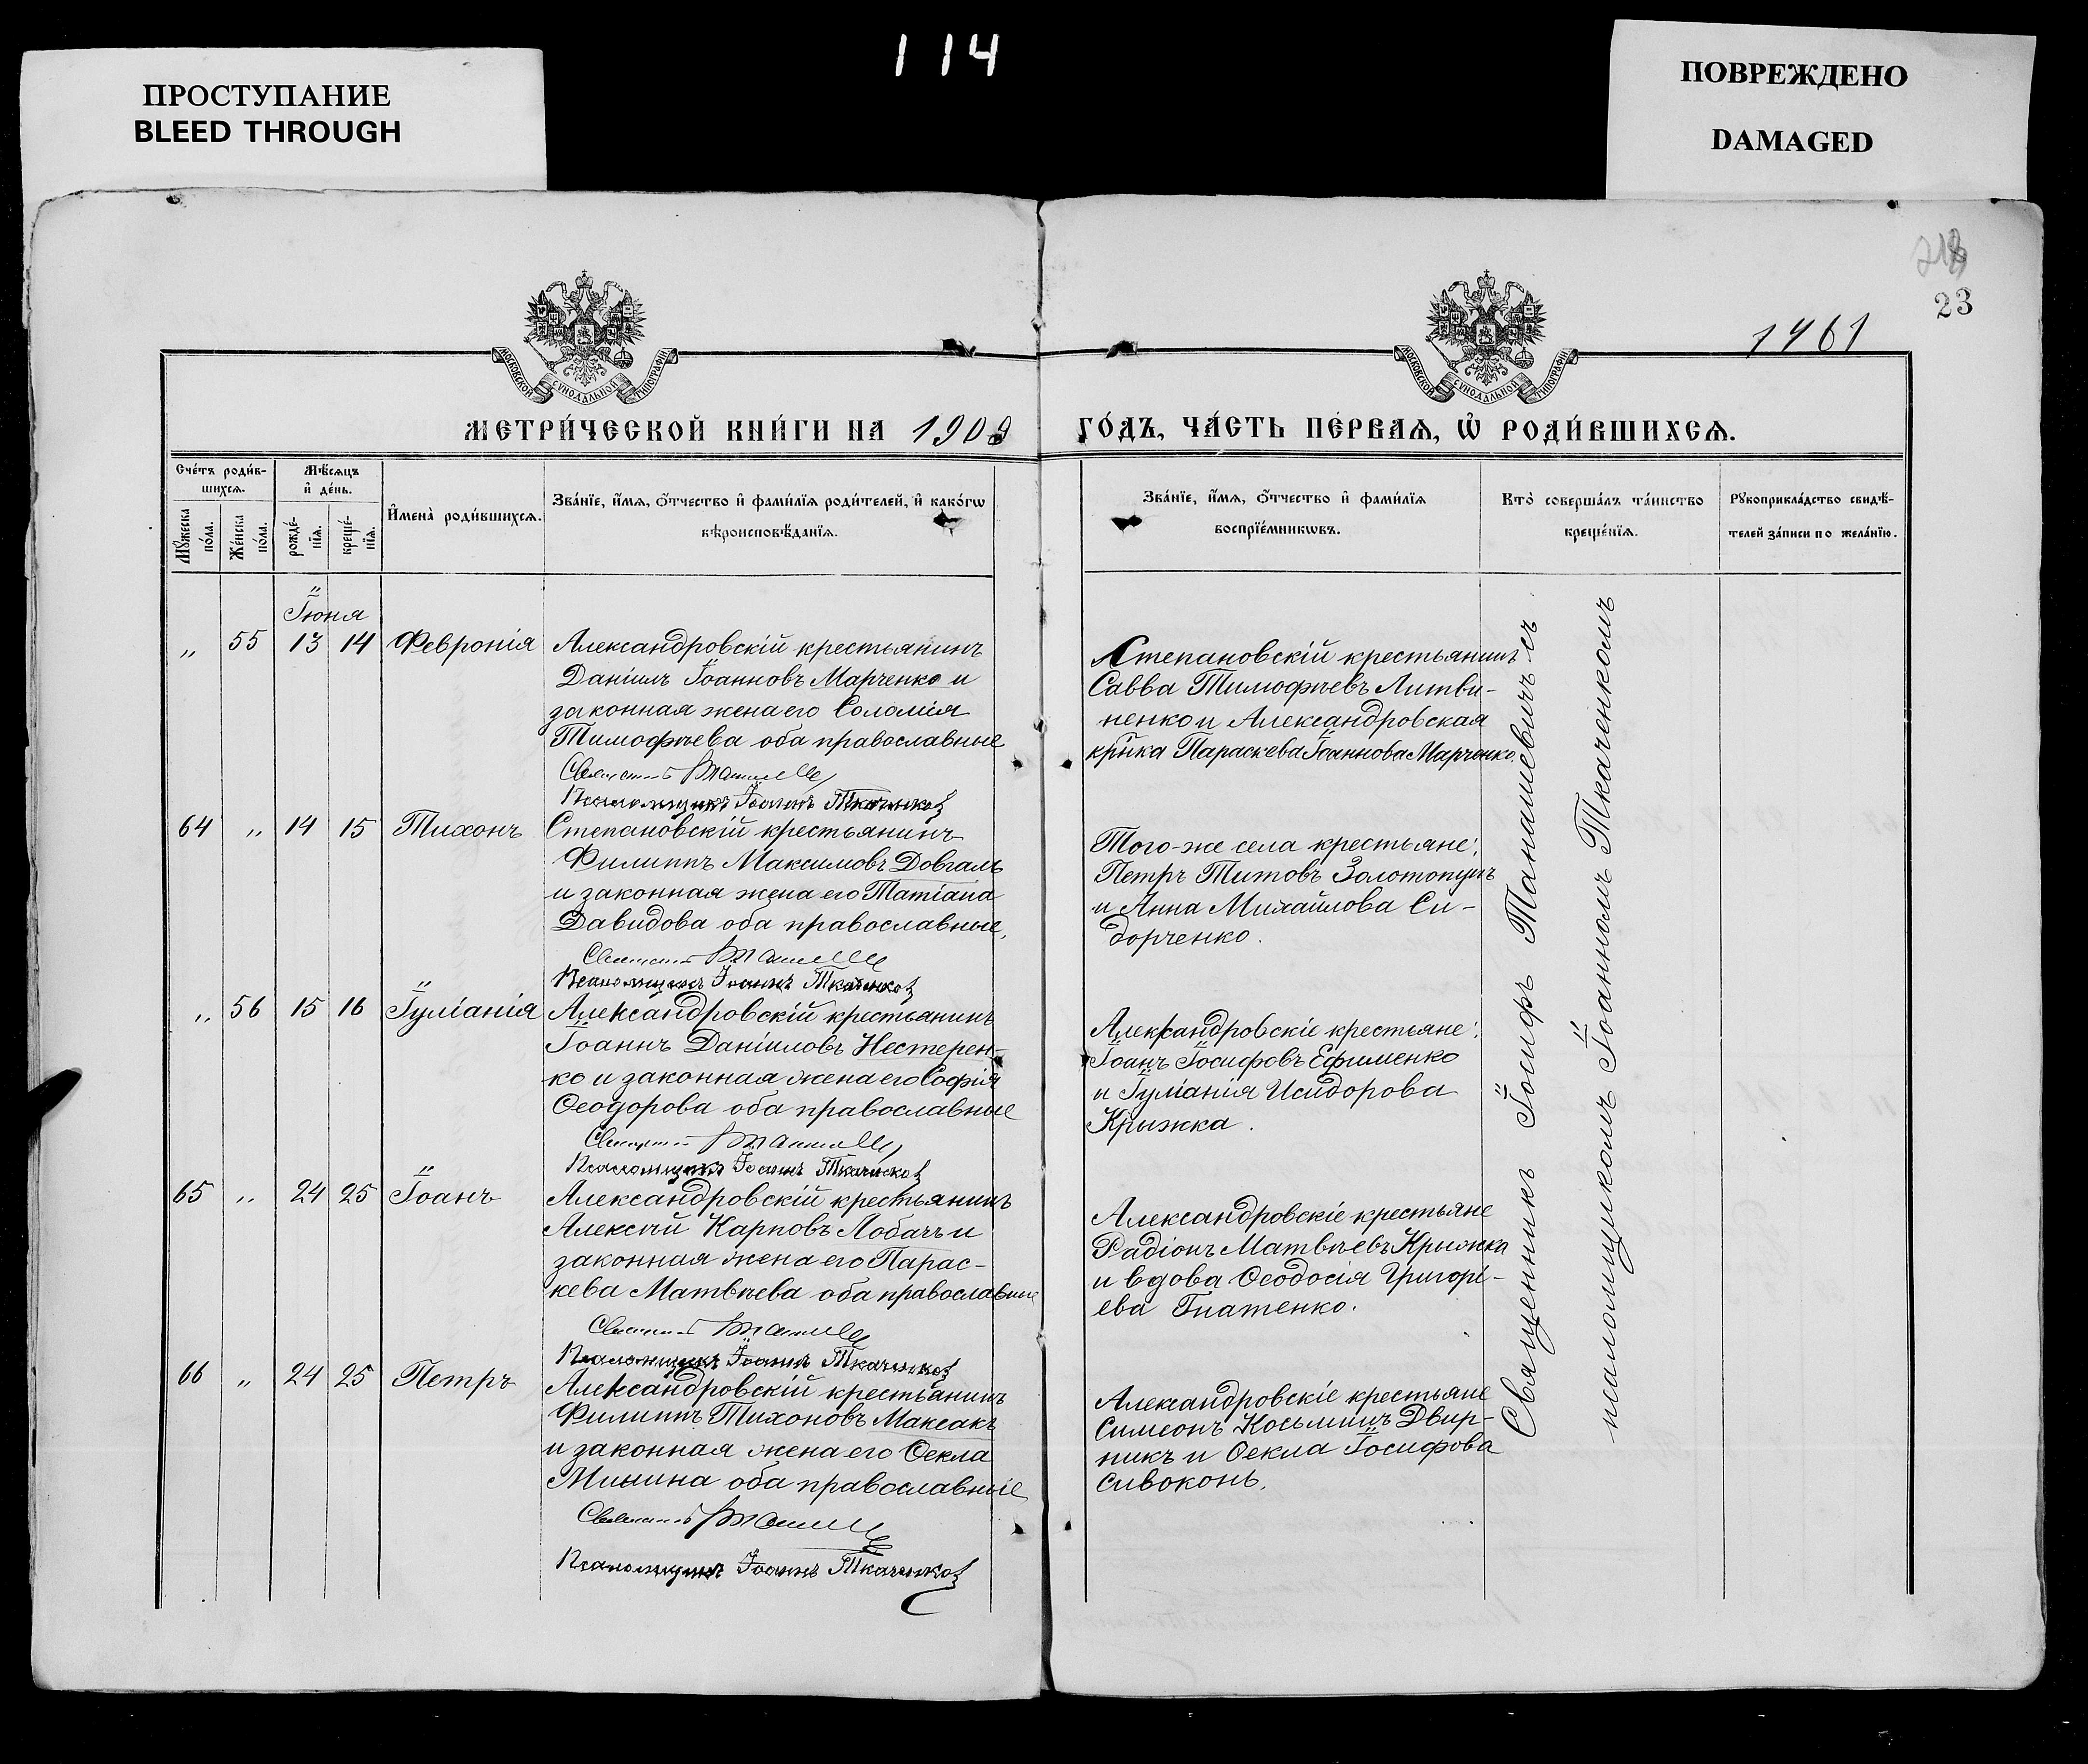 114
ПРОСТУПАНИЕ
BLEED THROUGH
ПОВРЕЖДЕНО
DAMAGED
23
1461
МОСКОВСКОЙ СУНОДАЛЬНОЙ ТИПОГРАФІИ
МОСКОВСКОЙ СУНОДАЛЬНОЙ ТИПОГРАФІИ
МЕТРИ́ЧЕСКОЙ КНИ́ГИ НА 1908
ГО́ДЪ, ЧА́СТЬ ПЕ́РВАѦ, Ѽ РОДИ́ВШИХСѦ.
Сче́тъ роди́в-
шихсѧ.
Мѣ́сѧцъ
и҆ де́нь.
Мꙋ́жеска
по́ла.
Же́нска
по́ла.
рожде́-
нїѧ.
креще́-
нїѧ.
И҆мена̀ роди́вшихсѧ.
Зва́нїе, и҆́мѧ, ѻ҆́тчество и҆ фами́лїѧ роди́телей, и҆ како́гѡ
вѣроисповѣ́данїѧ.
Зва́нїе, и҆́мѧ, ѻ҆́тчество и҆ фами́лїѧ
воспрїе́мникѡвъ.
Кто̀ соверша́лъ та́инство
креще́нїѧ.
Рꙋкоприкла́дство свидѣ́-
телей за́писи по жела́нїю.
Іюня
„ 55 13 14 Февронія
Александровскій крестьянинъ
Даніилъ Іоанновъ Марченко и
законная жена его Соломія
Тимофѣева оба православные
Псаломщикъ Іоаннъ Ткаченко
Степановскій крестьянинъ
Савва Тимофѣевъ Литви-
ненко и Александровская
кр̃нка Параскева Іоаннова Марченко.
64 „ 14 15 Тихонъ
Степановскій крестьянинъ
Филиппъ Максимовъ Довгаль
и законная жена его Татіана
Давидова оба православные.
Псаломщикъ Іоаннъ Ткаченко
Того-же села крестьяне:
Петръ Титовъ Золотопупъ
и Анна Михайлова Си-
дорченко.
„ 56 15 16 Іуліанія
Александровскій крестьянинъ
Іоаннъ Даніиловъ Нестерен-
ко и законная жена его Софія
Ѳеодорова оба православные
Псаломщикъ Іоаннъ Ткаченко
Александровскіе крестьяне:
Іоанъ Іосифовъ Ефименко
и Іуліанія Исидорова
Крыжка.
65 „ 24 25 Іоанъ
Александровскій крестьянинъ
Алексѣй Карповъ Лобачъ и
законная жена его Парас-
кева Матвѣева оба православные
Псаломщикъ Іоаннъ Ткаченко
Александровскіе крестьяне
Радіонъ Матвѣевъ Крыжка
и вдова Ѳеодосія Григорі-
ева Гнатенко.
66 „ 24 25 Петръ
Александровскій крестьянинъ
Филиппъ Тихоновъ Максакъ
и законная жена его Ѳекла
Минина оба православные
Псаломщикъ Іоаннъ Ткаченко
Александровскіе крестьяне
Симеонъ Косьминъ Двир-
никъ и Ѳекла Іосифова
Сивоконь.
Священникъ Іосифъ Танашевичъ съ
псаломщикомъ Іоанномъ Ткаченкомъ